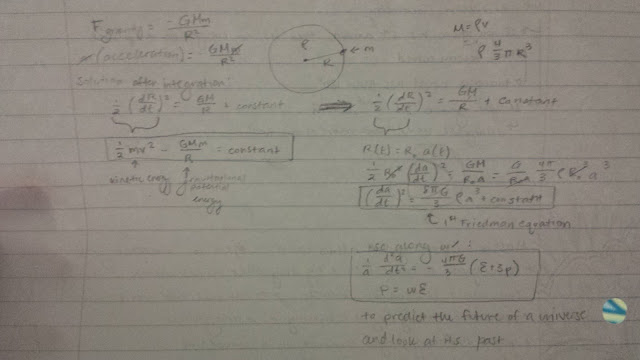 F gravity = -GMm / R²
m(acceleration) = GMm / R²
Solution after integration:
½ (dR/dt)² = GM/R + constant
½ mv² - GMm/R = constant
kinetic energy
gravitational potential energy
ρ
R
← m
M = ρV
ρ 4/3 π R³
⇒ ½ (dR/dt)² = GM/R + constant
R(t) = R₀ a(t)
(da/dt)² = 8πG/3 ρ a³ + constant
↑ 1st Friedman equation
use along w/:
1/a d²a/dt² = - 4πG/3 (ε+3p)
P = wε
to predict the future of a universe
and look at its past